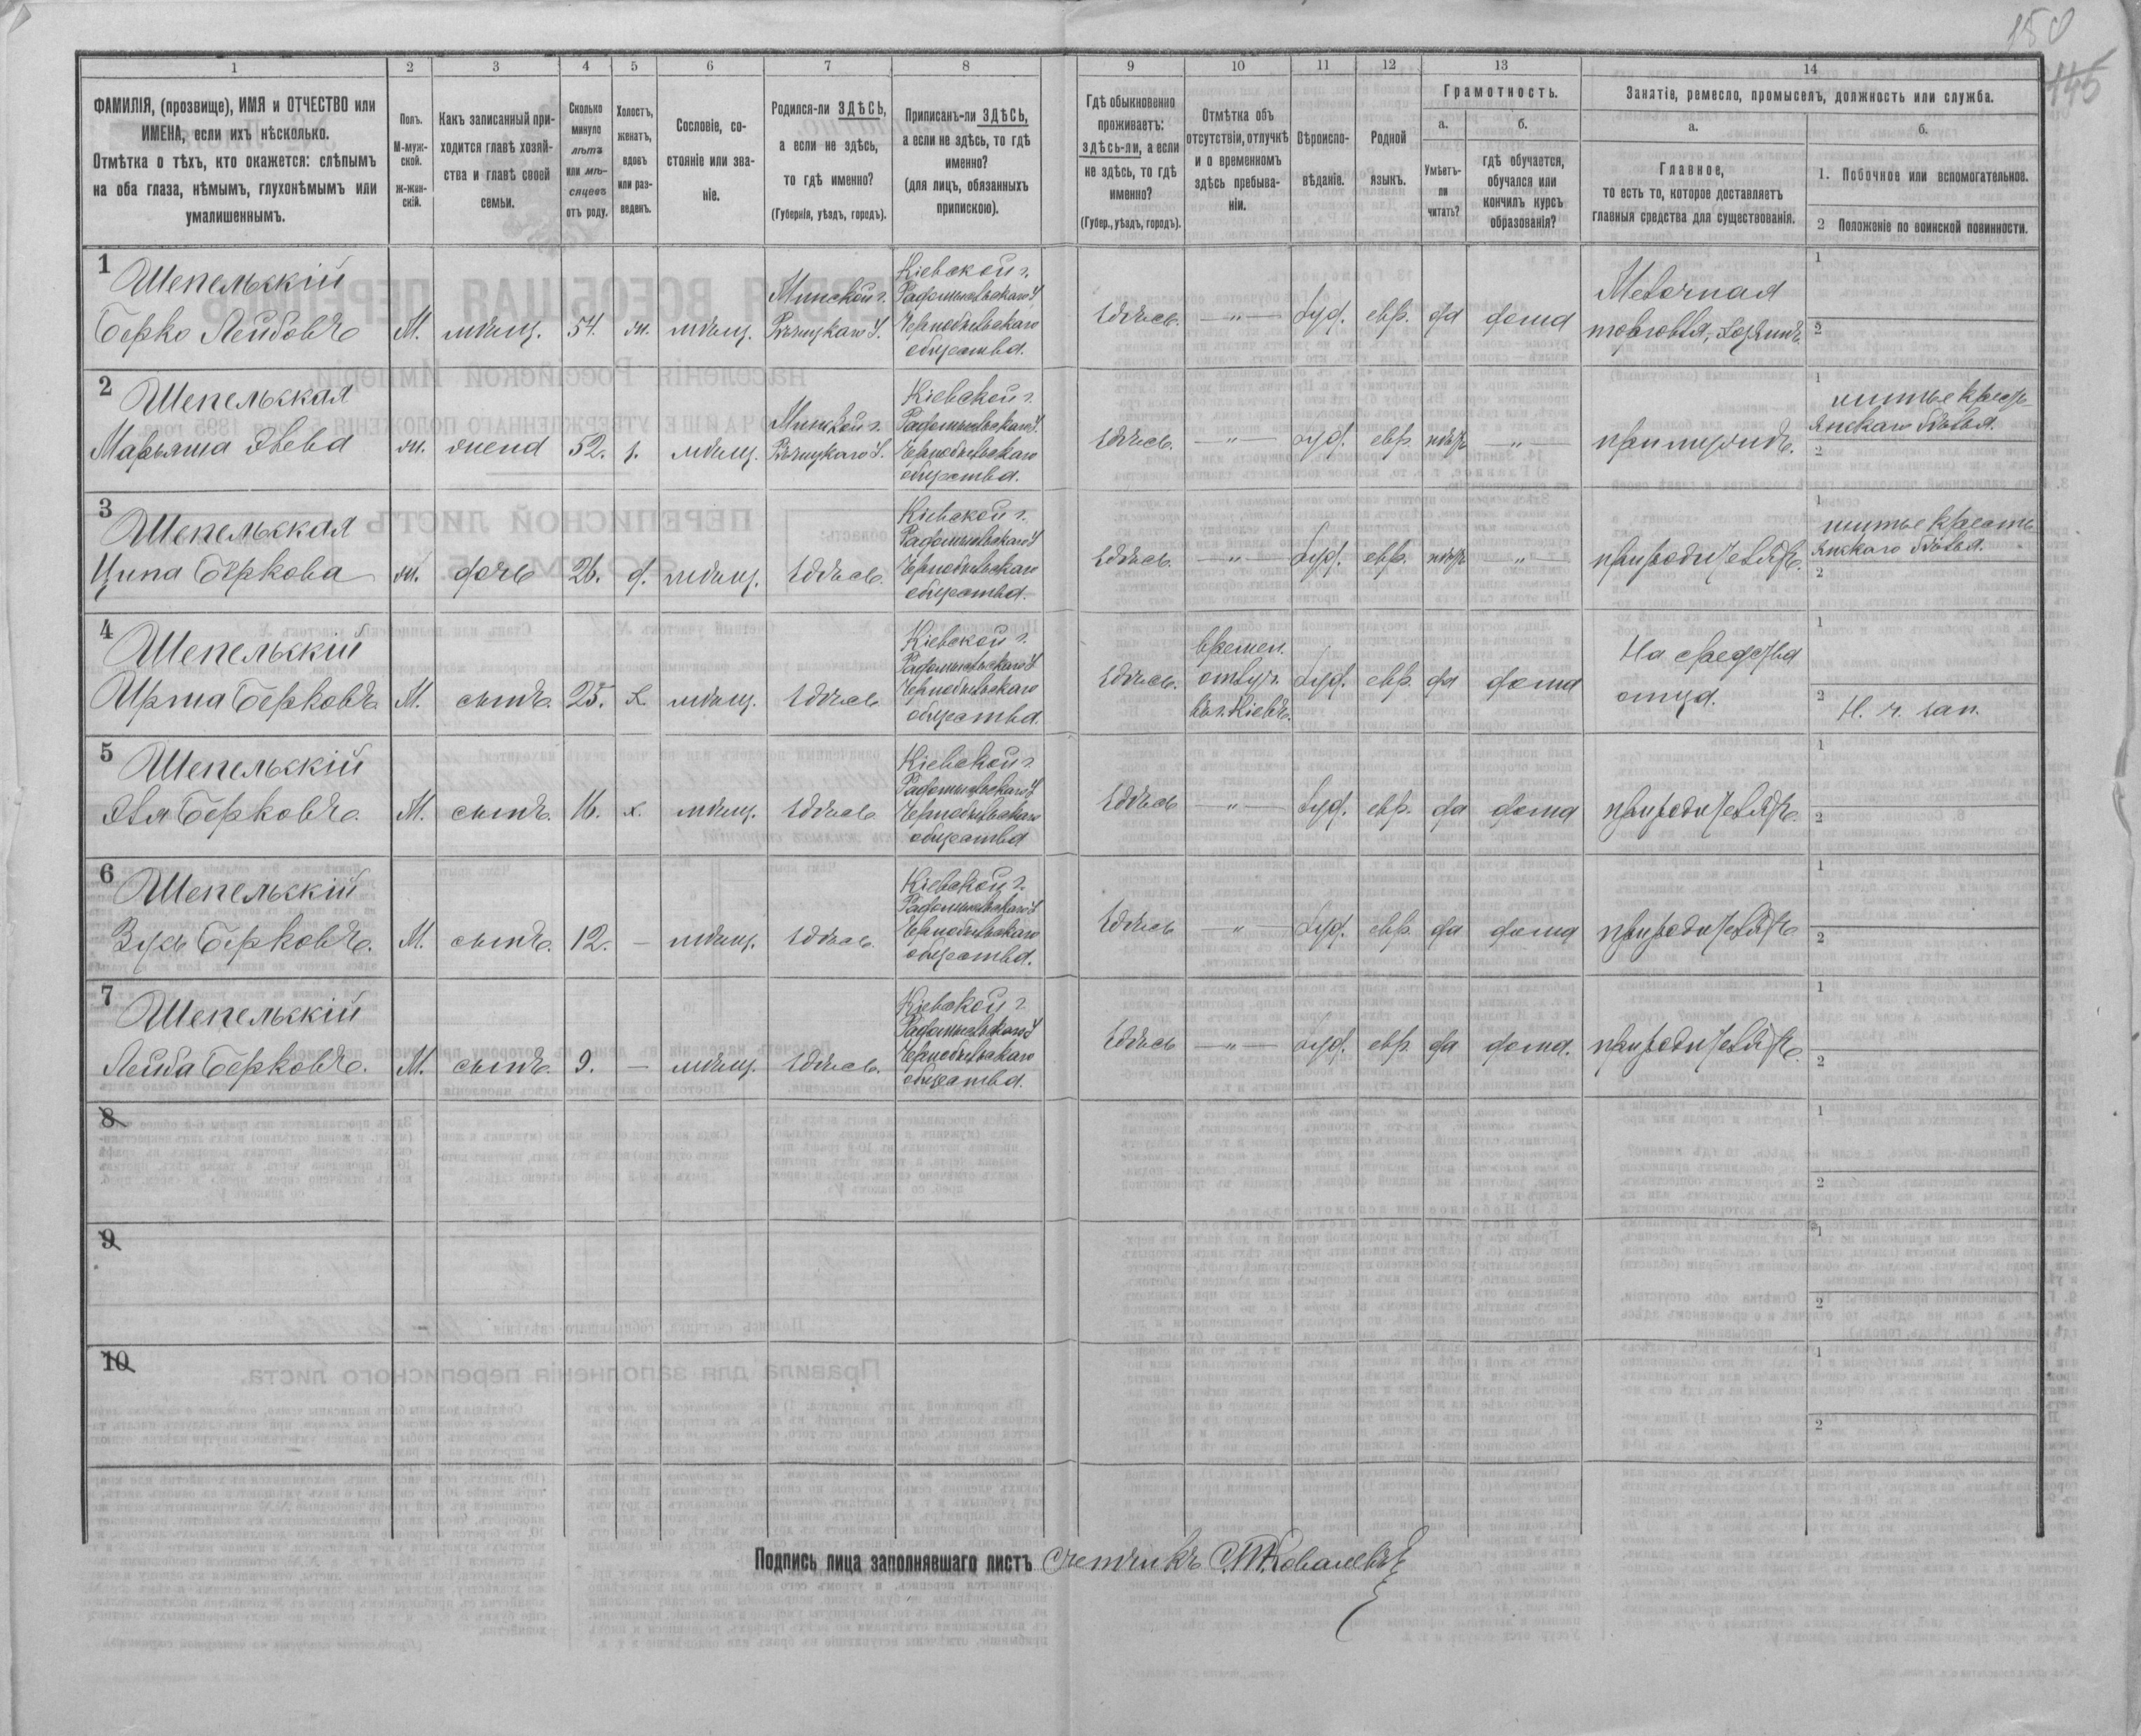 150
145
1 2 3 4 5 6 7 8 9 10 11 12 13 14
ФАМИЛІЯ, (прозвище), ИМЯ и ОТЧЕСТВО или
ИМЕНА, если ихъ нѣсколько.
Отмѣтка о тѣхъ, кто окажется: слѣпымъ
на оба глаза, нѣмымъ, глухонѣмымъ или
умалишеннымъ.
Полъ.
М-муж-
ской.
Ж-жен-
скій.
Какъ записанный при-
ходится главѣ хозяй-
ства и главѣ своей
семьи.
Сколько
минуло
лѣтъ
или мѣ-
сяцевъ
отъ роду.
Холостъ,
женатъ,
вдовъ
или раз-
веденъ.
Сословіе, со-
стояніе или зва-
ніе.
Родился-ли ЗДѢСЬ,
а если не здѣсь,
то гдѣ именно?
(Губернія, уѣздъ, городъ).
Приписанъ-ли ЗДѢСЬ,
а если не здѣсь, то гдѣ
именно?
(для лицъ, обязанныхъ
припискою).
Гдѣ обыкновенно
проживаетъ:
здѣсь-ли, а если
не здѣсь, то гдѣ
именно?
(Губер., уѣздъ, городъ).
Отмѣтка объ
отсутствіи, отлучкѣ
и о временномъ
здѣсь пребыва-
ніи.
Вѣроиспо-
вѣданіе.
Родной
языкъ.
Грамотность.
а.
Умѣетъ-
ли
читать?
б.
гдѣ обучается,
обучался или
кончилъ курсъ
образованія?
Занятіе, ремесло, промыселъ, должность или служба.
а.
Главное,
то есть то, которое доставляетъ
главныя средства для существованія.
б.
1. Побочное или вспомогательное.
2 Положеніе по воинской повинности.
1
Шепельскій
Берко Лейбовъ
М. мѣщ. 54. ж. мѣщ.
Минской г.
Рѣчицкаго У.
Кіевской г.
Радомысльскаго У.
Чернобыльскаго
общества.
здѣсь. — " — Іуд. евр. да дома
Мелочная
торговля, хозяинъ.
1
2
2
Шепельская
Марьяша
ж. жена 52. з. мѣщ.
Минской г.
Рѣчицкаго У.
Кіевской г.
Радомысльскаго У.
Чернобыльскаго
общества.
здѣсь. — " — Іуд. евр. нѣтъ — " —
при мужѣ.
1 шитье кресть
янскаго бѣлья.
2
3
Шепельская
Ципа Беркова
ж. дочь 26. д. мѣщ. здѣсь.
Кіевской г.
Радомысльскаго У
Чернобыльскаго
общества.
здѣсь. — " — Іуд. евр. нѣтъ — " —
при родителяхъ.
1 шитье кресть
янскаго бѣлья.
2
4
Шепельскій
Ирша Берковъ
М. сынъ. 25. х. мѣщ. здѣсь
Кіевской г.
Радомысльскаго У
Чернобыльскаго
общества.
здѣсь.
времен.
отлуч.
въ г. Кіевъ.
Іуд. евр. да дома
На средства
отца.
1
2 Н. ч. зап.
5
Шепельскій
Берковъ.
М. сынъ. 16. х. мѣщ. здѣсь
Кіевской г.
Радомысльскаго У
Чернобыльскаго
общества
здѣсь — " — Іуд. евр. да дома
при родителяхъ.
1
2
6
Шепельскій
Зусь Берковъ.
М. сынъ. 12. — мѣщ. здѣсь.
Кіевской г.
Радомысльскаго У
Чернобыльскаго
общества.
здѣсь — " — Іуд. евр. да дома
при родителяхъ
1
2
7
Шепельскій
Лейба Берковъ.
М. сынъ. 9. — мѣщ. здѣсь.
Кіевской г.
Радомысльскаго У
Чернобыльскаго
общества.
здѣсь — " — Іуд. евр. да дома.
при родителяхъ.
1
2
8
1
2
9
1
2
10
1
2
Подпись лица заполнявшаго листъ Счетчикъ